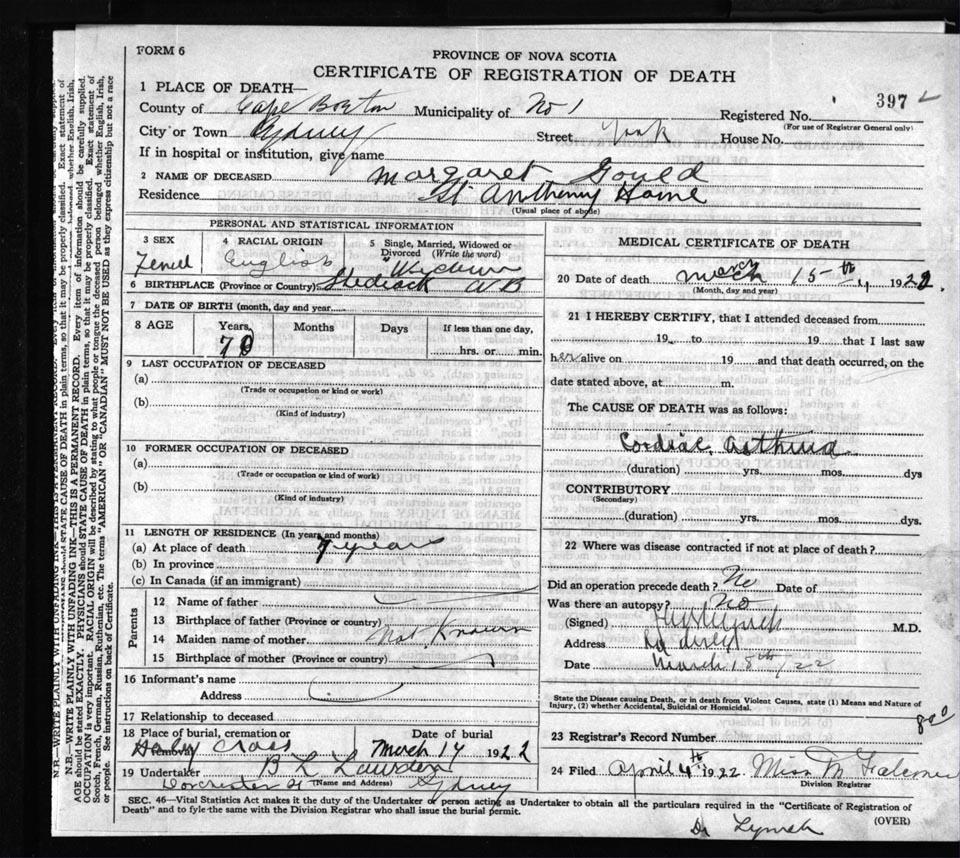 FORM 6
PROVINCE OF NOVA SCOTIA
CERTIFICATE OF REGISTRATION OF DEATH
1 PLACE OF DEATH—
County of Cape Breton Municipality of No 1 Registered No. 397
(For use of Registrar General only)
City or Town Sydney Street York House No.
If in hospital or institution, give name
2 NAME OF DECEASED Margaret Gould
Residence St Anthony Home
(Usual place of abode)
PERSONAL AND STATISTICAL INFORMATION
3 SEX 4 RACIAL ORIGIN 5 Single, Married, Widowed or
Divorced (Write the word)
English
6 BIRTHPLACE (Province or Country)
7 DATE OF BIRTH (month, day and year)
8 AGE Years, Months Days If less than one day,
70 hrs. or min.
9 LAST OCCUPATION OF DECEASED
(a)
(Trade or occupation or kind or work)
(b)
(Kind of industry)
10 FORMER OCCUPATION OF DECEASED
(a)
(Trade or occupation or kind or work)
(b)
(Kind of industry)
11 LENGTH OF RESIDENCE (In years and months)
(a) At place of death 7 years
(b) In province
(c) In Canada (if an immigrant)
Parents
12 Name of father
13 Birthplace of father (Province or country)
14 Maiden name of mother Not Known
15 Birthplace of mother (Province or country)
16 Informant's name
Address
17 Relationship to deceased
18 Place of burial, cremation or removal Date of burial
Holy Cross March 17 1922
19 Undertaker B L
(Name and Address)
Dorchester St Sydney
MEDICAL CERTIFICATE OF DEATH
20 Date of death March 15th 1922.
(Month, day and year)
21 I HEREBY CERTIFY, that I attended deceased from
19 to 19 that I last saw
her alive on 19 and that death occurred, on the
date stated above, at m.
The CAUSE OF DEATH was as follows:
Cardiac asthma
(duration) yrs. mos. dys
CONTRIBUTORY
(Secondary)
(duration) yrs. mos. dys.
22 Where was disease contracted if not at place of death?
Did an operation precede death? No Date of
Was there an autopsy? No
(Signed) Lynch M.D.
Address Sydney
Date March 18th/22
State the Disease causing Death, or in death from Violent Causes, state (1) Means and Nature of
Injury, (2) whether Accidental, Suicidal or Homicidal.
23 Registrar's Record Number
24 Filed April 4th 1922. Miss M
Division Registrar
SEC. 46—Vital Statistics Act makes it the duty of the Undertaker or person acting as Undertaker to obtain all the particulars required in the "Certificate of Registration of
Death" and to fyle the same with the Division Registrar who shall issue the burial permit.
(OVER)
Dr Lynch
N.B.—WRITE PLAINLY WITH UNFADING INK—THIS IS A PERMANENT RECORD. Every item of information should be carefully supplied.
AGE should be stated EXACTLY. PHYSICIANS should STATE CAUSE OF DEATH in plain terms, so that it may be properly classified. Exact statement of
OCCUPATION is very important. RACIAL ORIGIN will be described by stating to what people or tongue the deceased person belonged whether English, Irish,
Scotch, French, German, Russian, Ruthenian, etc. The terms "AMERICAN" OR "CANADIAN" MUST NOT BE USED as they express citizenship but not a race
or people. See instructions on back of Certificate.